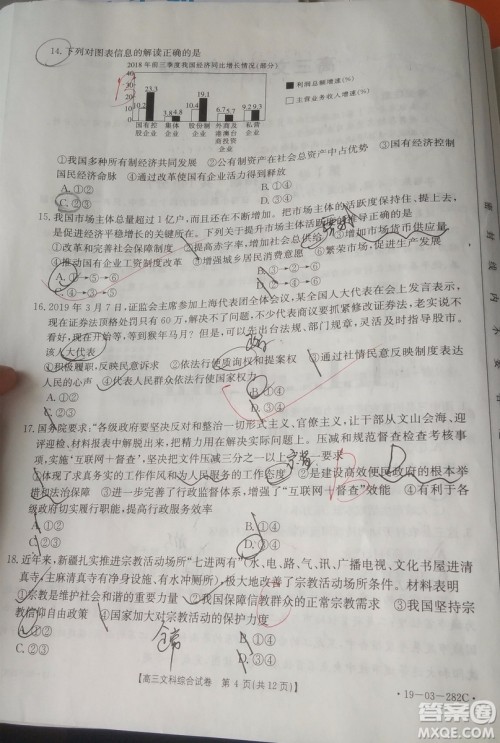 14. 下列对图表信息的解读正确的是
2018年前三季度我国经济同比增长情况(部分)
40
30
20
10
0
10.2 23.3 3.8 4.8 10.4 19.1 6.7 5.7 9.2 9.3
■利润总额增速(%)
□主营业务收入增速(%)
国有控股企业 集体企业 股份制企业 外商及港澳台商投资企业 私营企业
①我国多种所有制经济共同发展 ②公有制资产在社会总资产中占优势 ③国有经济控制
国民经济命脉 ④通过改革使国有企业的能量得到释放
A.①② B.①④
C.②③ D.③④
15. 我国市场主体总量超过1亿户,而且在不断增加。把市场主体的活跃度保持住,提上去,
是促进经济平稳增长的关键所在。下列关于提升市场主体的活跃度推导正确的是
①深化供给侧结构性改革 ②提高赤字率,增加社会总供给 ③增加实际货币供应量
④推动国有企业工资制度改革 ⑤增强城乡居民消费能力 ⑥繁荣市场,促进生产发展
A.①→⑤→⑥
C.④→⑤→⑥
16. 2019年3月7日,证监会主席参加上海代表团全体会议,某全国人大代表在会上发言表示,
现在证券法顶格处罚只有60万,解决不了问题。建议人大代表要抓紧修改证券法。现在
看好,现在开始等,到猴年马月?我们可以先出台法规、部门规章,灵活及时指导股市。
该人大代表
①积极履职,反映民意 ②依法行使质询权和提案权 ③通过社情民意反映制度表达
人民的心声 ④代表人民群众依法行使国家权力
A.①② B.①④
C.②③ D.③④
17. 国务院要求:“各级政府要坚决反对和整治一切形式主义、官僚主义,让干部从文山会海、迎
评迎检、材料报表中解脱出来,把精力用在解决实际问题上。压减和规范督查检查考核事
项,实施“互联网+督查”,坚决把督查检查考核事项减少三分之一以上
①体现了求真务实的工作作风和为人民服务的工作态度 ②是建设高效便民政府的根本举
措和法治保障 ③创新了进行行政监督体系,增强了“互联网+督查”效能 ④有利于各级
政府切实履行职能,提高行政水平和效率
A.①② B.①④
C.②③ D.③④
18. 近年来,新疆扎实推进宗教活动场所“七进两有”(水、电、路、气、讯、广播电视、文化书屋进清
真寺,主麻清真寺有净身设施、有水冲厕所),极大地改善了宗教活动场所条件。材料表明
①宗教是维护社会和谐的积极力量 ②我国保障信教群众的正常宗教需求 ③我国坚持宗教
信仰自由政策 ④国家加大对宗教活动的保护力度
A.①② B.①④
C.②③ D.③④
【高三文科综合试卷 第4页(共12页)】
·19-03-282C·
答案圈
MXQE.COM